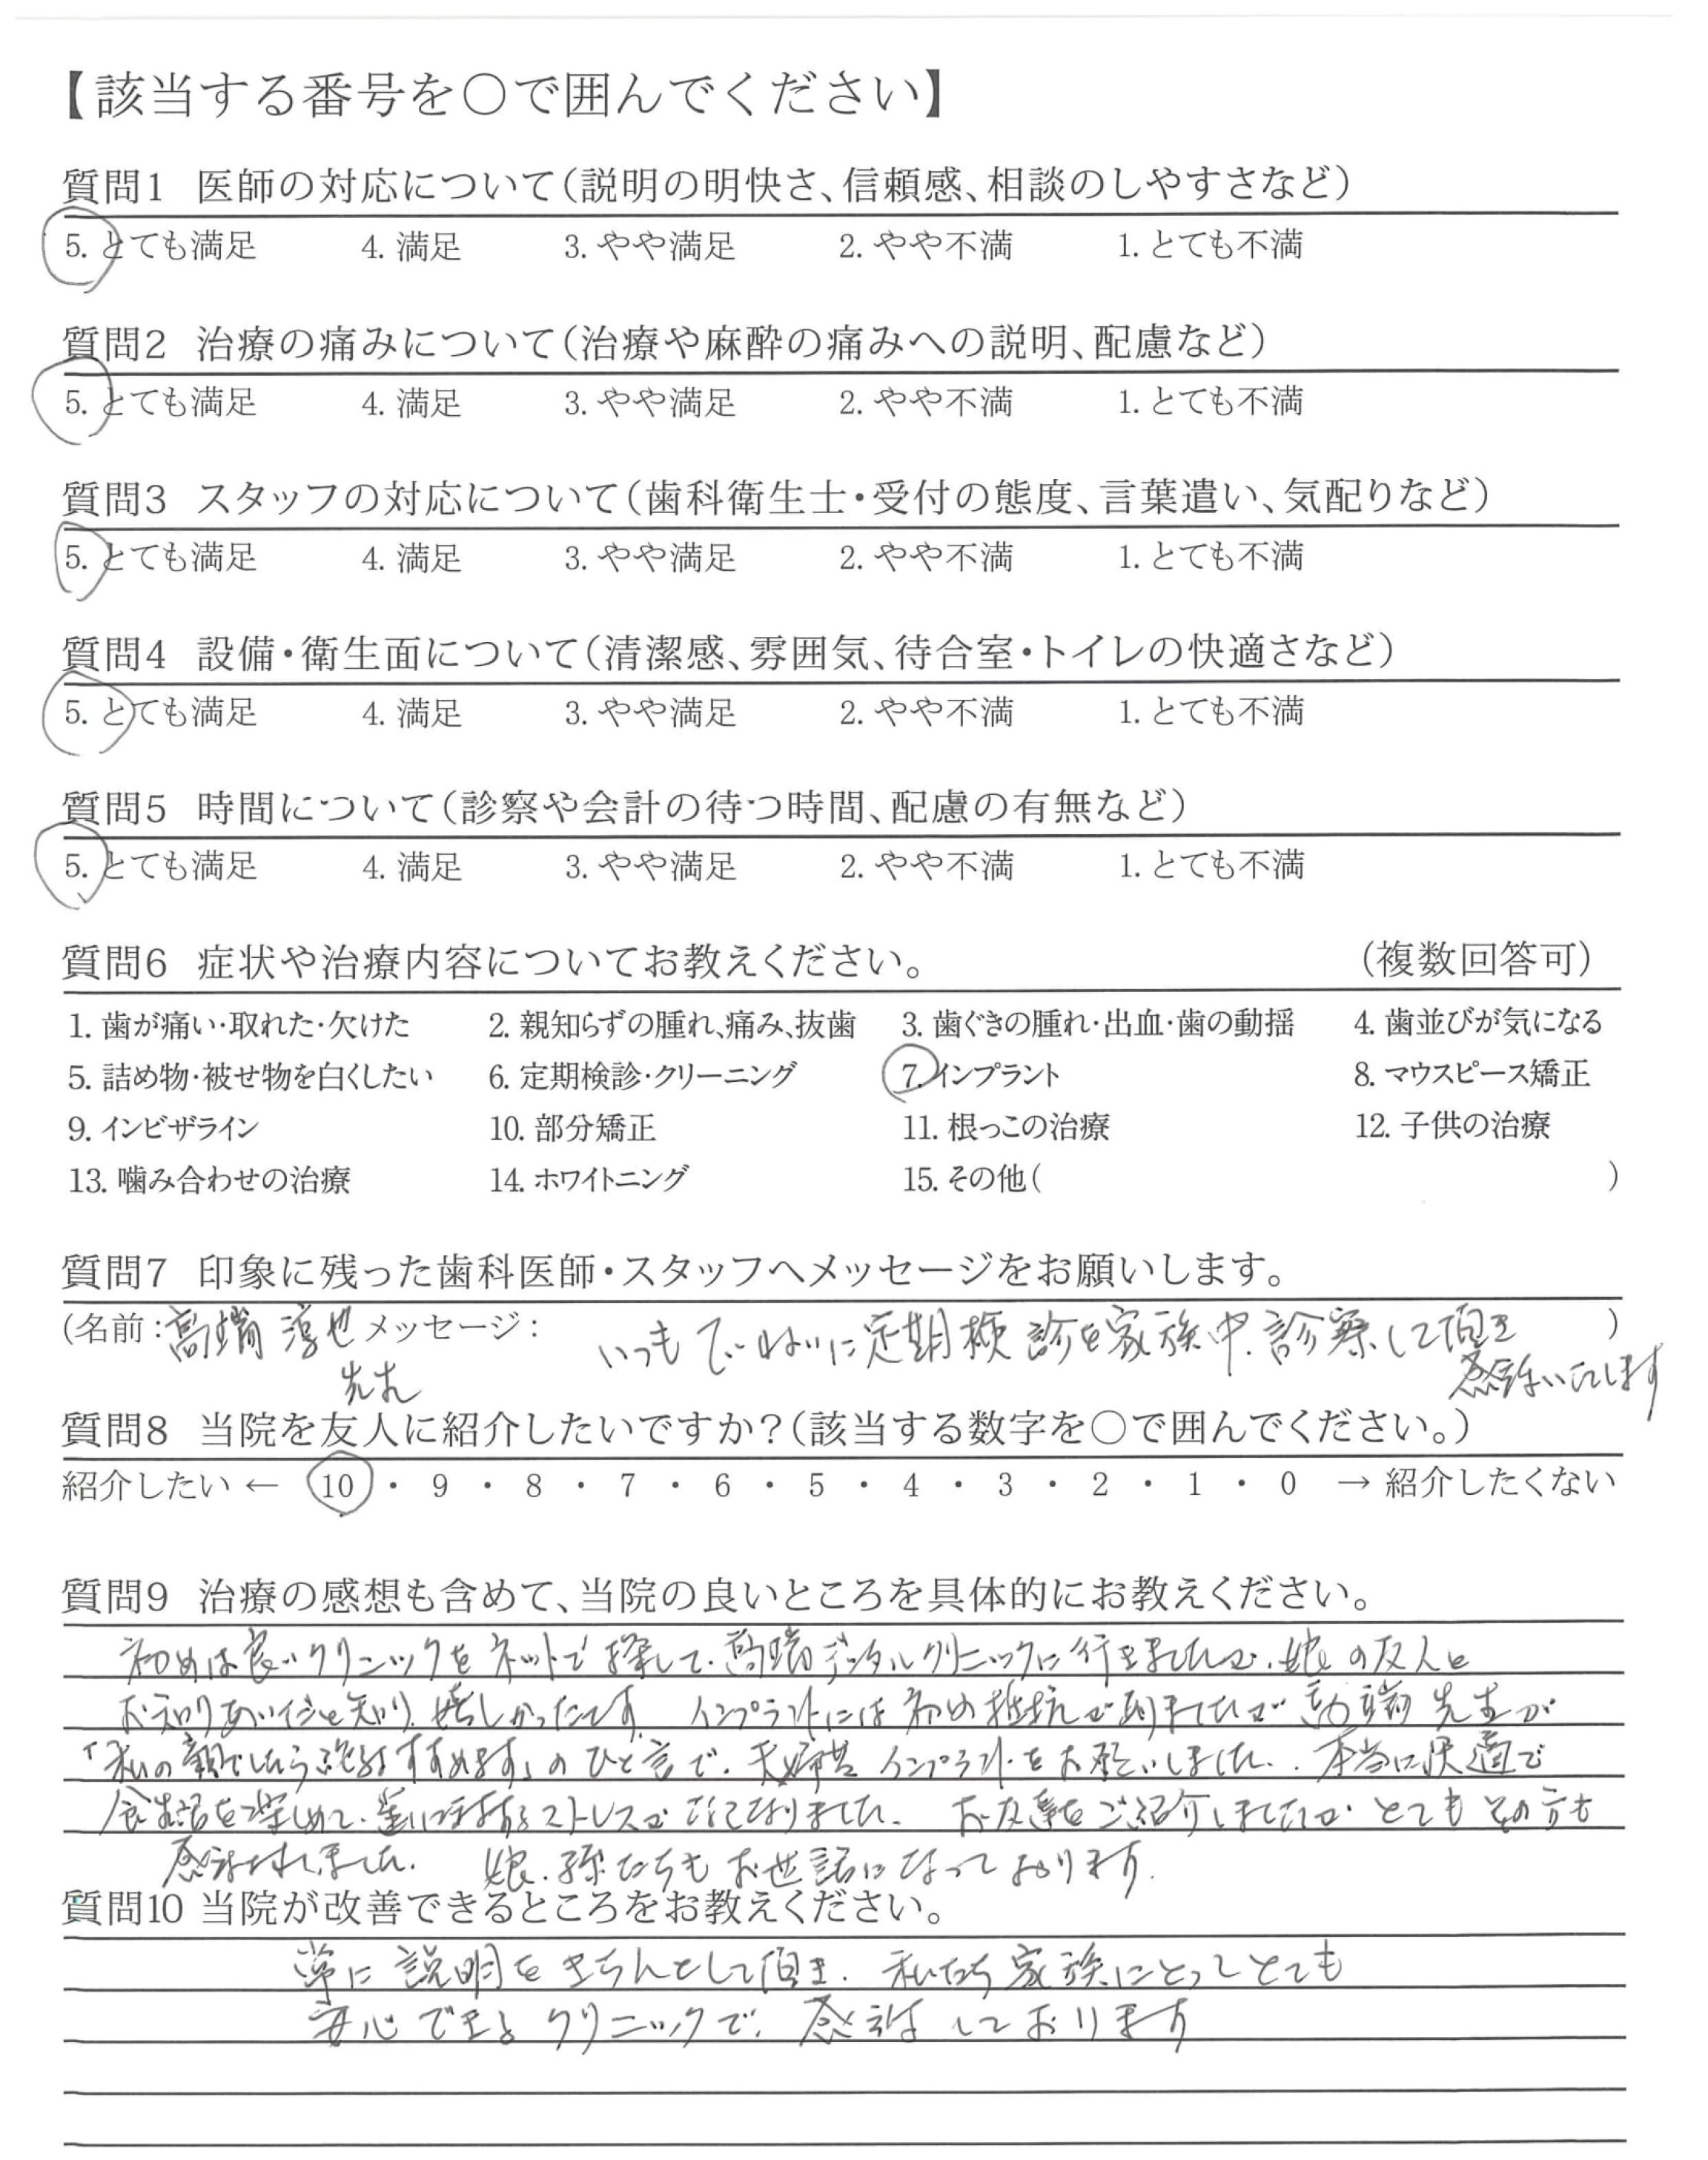 【該当する番号を○で囲んでください】
質問1 医師の対応について（説明の明快さ、信頼感、相談のしやすさなど）
5. とても満足 4. 満足 3. やや満足 2. やや不満 1. とても不満
質問2 治療の痛みについて（治療や麻酔の痛みへの説明、配慮など）
5. とても満足 4. 満足 3. やや満足 2. やや不満 1. とても不満
質問3 スタッフの対応について（歯科衛生士・受付の態度、言葉遣い、気配りなど）
5. とても満足 4. 満足 3. やや満足 2. やや不満 1. とても不満
質問4 設備・衛生面について（清潔感、雰囲気、待合室・トイレの快適さなど）
5. とても満足 4. 満足 3. やや満足 2. やや不満 1. とても不満
質問5 時間について（診察や会計の待つ時間、配慮の有無など）
5. とても満足 4. 満足 3. やや満足 2. やや不満 1. とても不満
質問6 症状や治療内容についてお教えください。 （複数回答可）
1. 歯が痛い・取れた・欠けた 2. 親知らずの腫れ、痛み、抜歯 3. 歯ぐきの腫れ・出血・歯の動揺 4. 歯並びが気になる
5. 詰め物・被せ物を白くしたい 6. 定期検診・クリーニング 7. インプラント 8. マウスピース矯正
9. インビザライン 10. 部分矯正 11. 根っこの治療 12. 子供の治療
13. 噛み合わせの治療 14. ホワイトニング 15. その他( )
質問7 印象に残った歯科医師・スタッフへメッセージをお願いします。
(名前：高端 淳也 メッセージ： いつもていねいに定期検診を家族中、診察して頂き )
先生 感謝いたします
質問8 当院を友人に紹介したいですか？（該当する数字を○で囲んでください。）
紹介したい ← 10 ・ 9 ・ 8 ・ 7 ・ 6 ・ 5 ・ 4 ・ 3 ・ 2 ・ 1 ・ 0 → 紹介したくない
質問9 治療の感想も含めて、当院の良いところを具体的にお教えください。
初めは良いクリニックをネットで探して、高端デンタルクリニックに行きましたが、娘の友人と
お知りあい と知り、嬉しかったです。 インプラントには初め抵抗がありましたが 高端先生が
「私の親でしたら絶対すすめます」のひと言で、夫婦共 インプラントをお願いしました。本当に快適で
食生活を楽しめて、 ストレスがなくなりました。 お友達をご紹介しましたが とてもその方も
感謝されました。 娘、孫たちもお世話になっております。
質問10 当院が改善できるところをお教えください。
常に説明をきちんとして頂き、私たち家族にとってとても
安心できる クリニックで、感謝しております